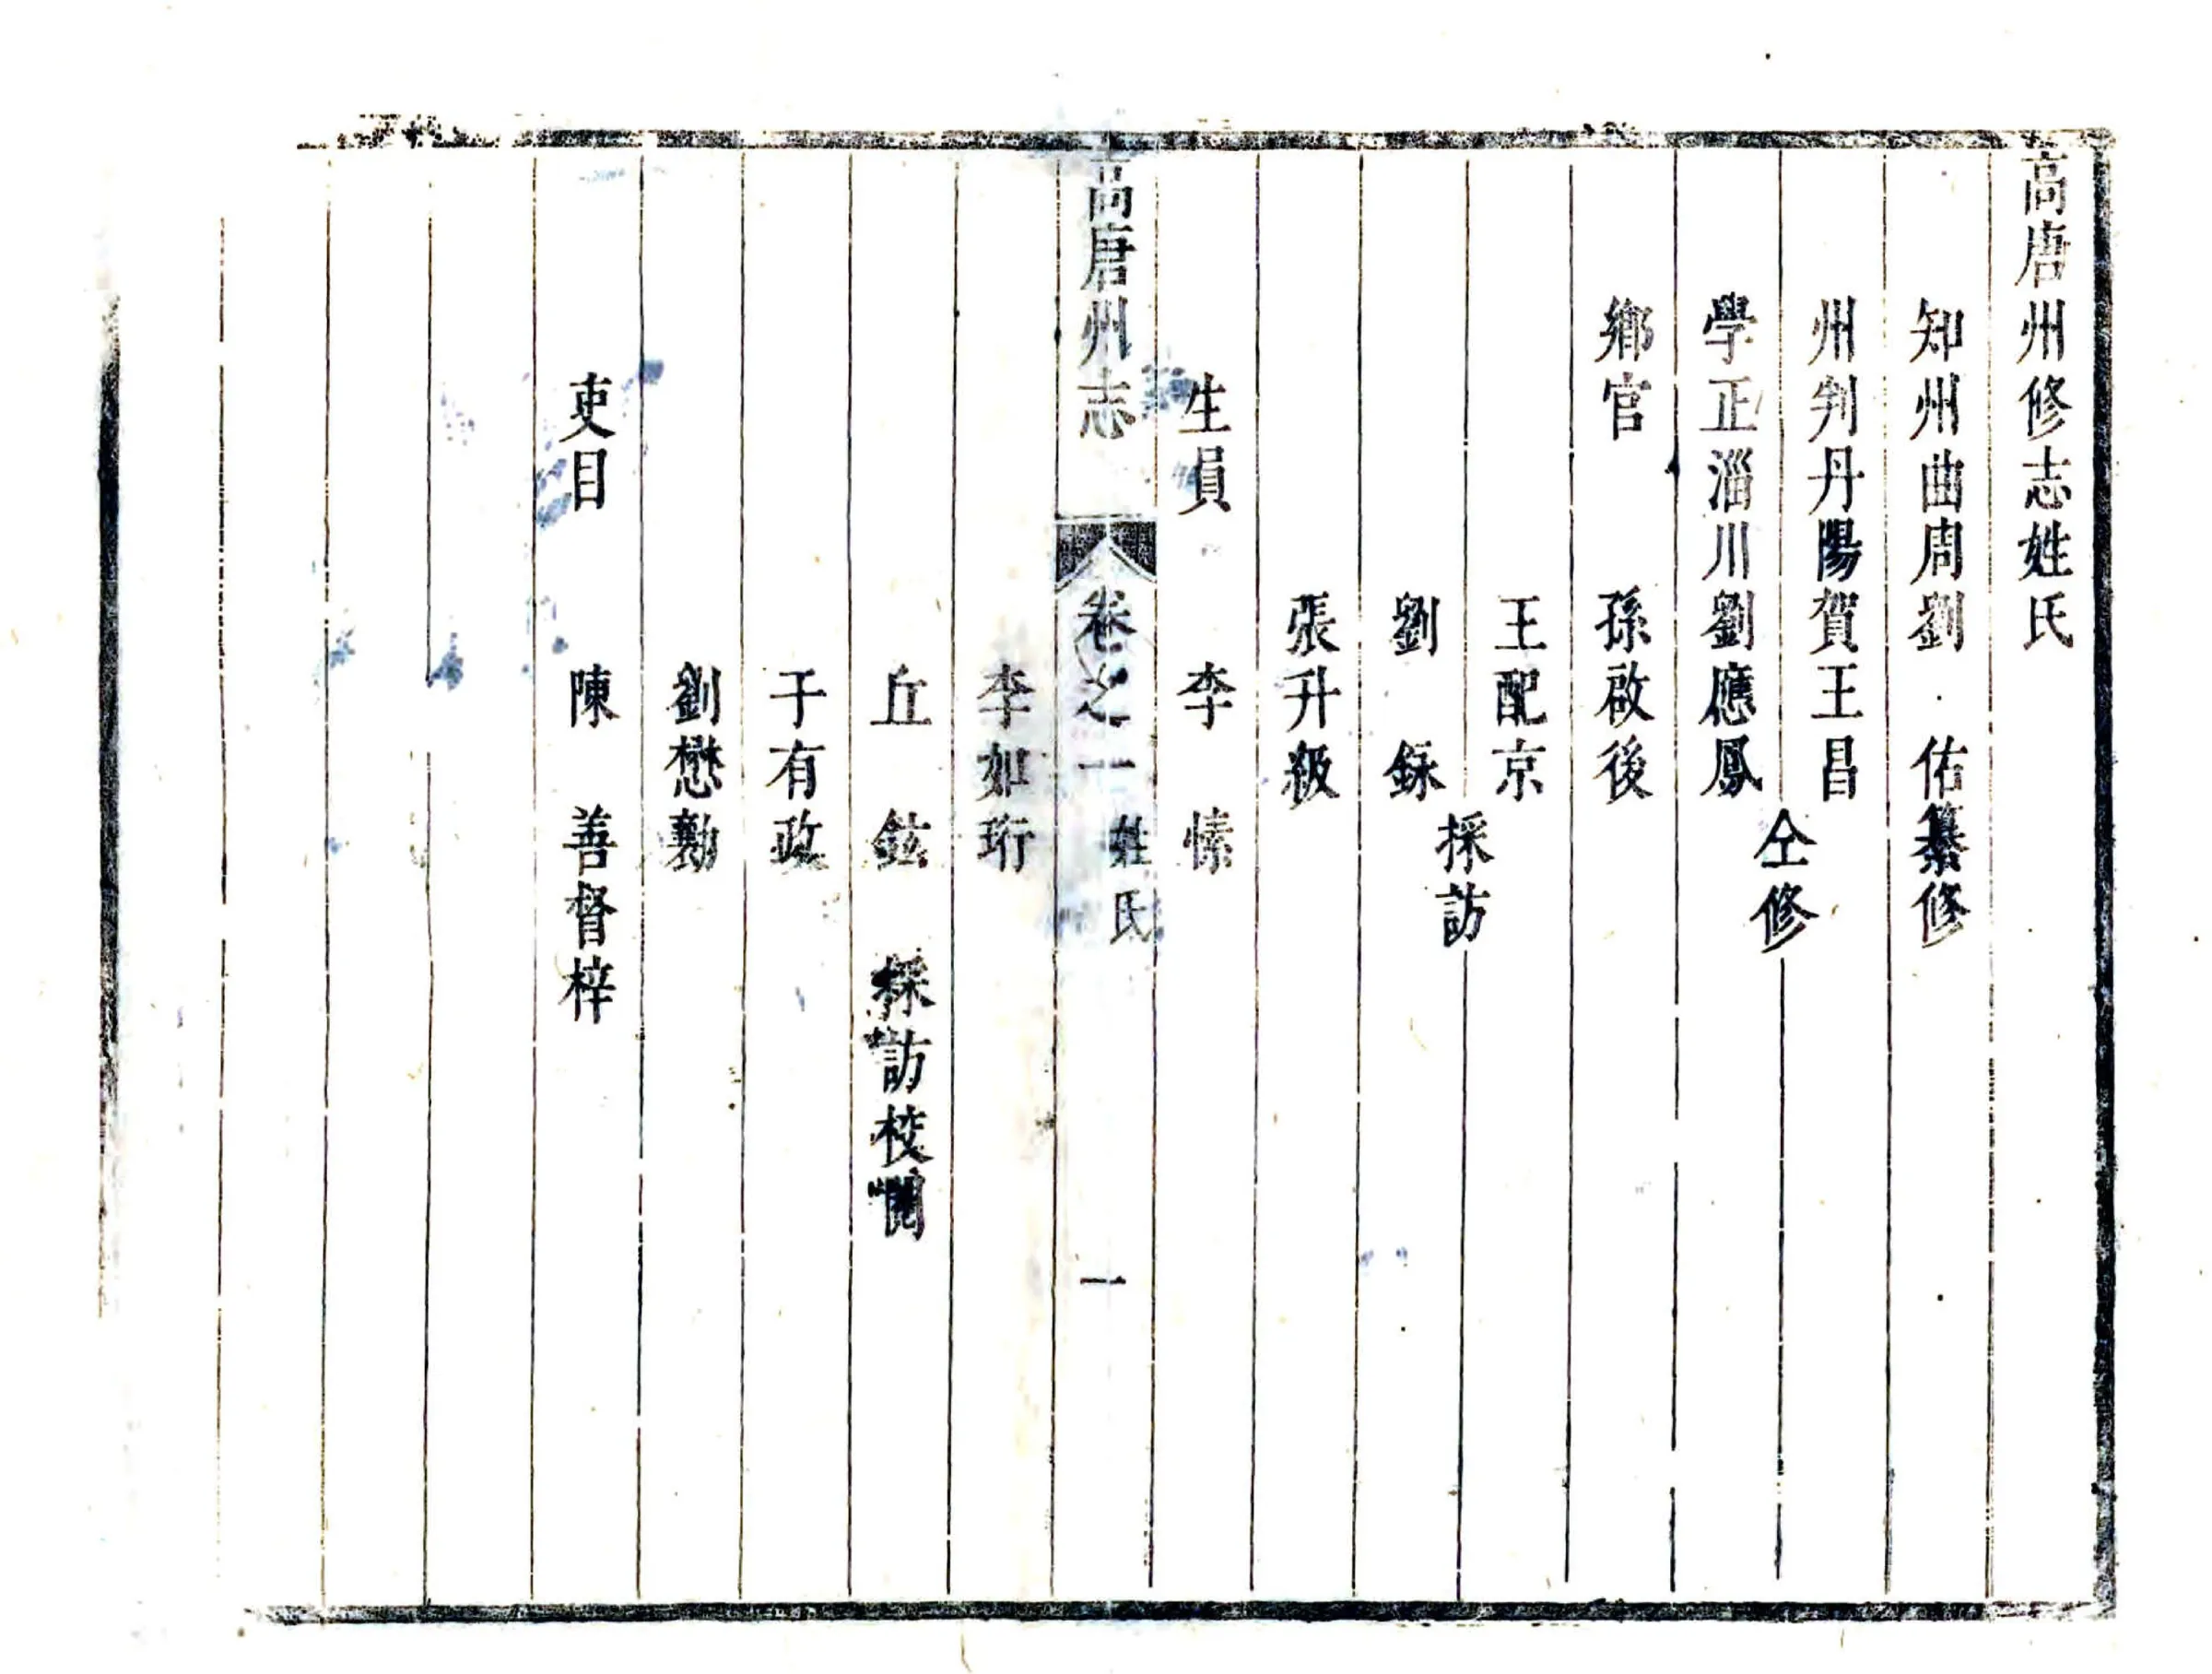 高唐州修志姓氏
知州曲周劉佑纂修
州判丹陽賀王昌
仝修
學正淄川劉應鳳
鄉官 孫啟後
王配京
採訪
劉 銾
張升級
生員 李愫
高唐州志 卷之一 姓氏 一
李如珩
丘鉉 採訪校閱
于有政
劉懋勷
吏目 陳善督梓